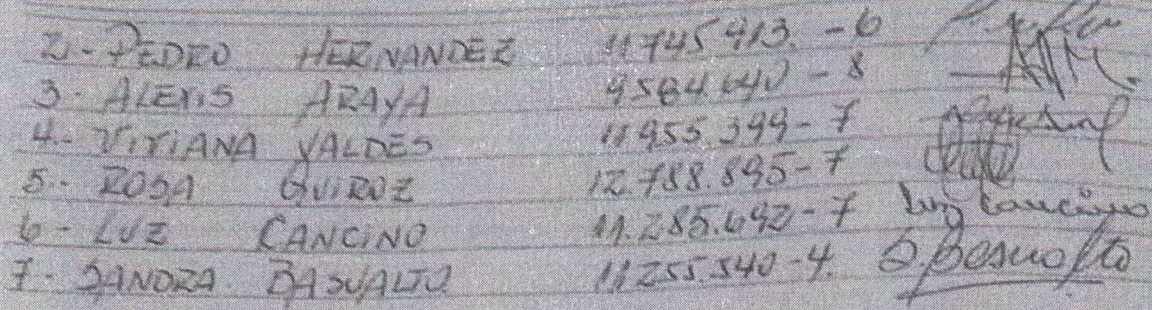 2.- PEDRO HERNANDEZ 11745.913.-6
3- ALEXIS ARAYA 9564.640-8
4.- VIVIANA VALDES 11955.399-7
5.- ROSA QUIROZ 12.788.895-7
6- LUZ CANCINO 11.285.692-7 Luz Cancino
7- SANDRA BASUALTO 11255.540-4. S Basualto